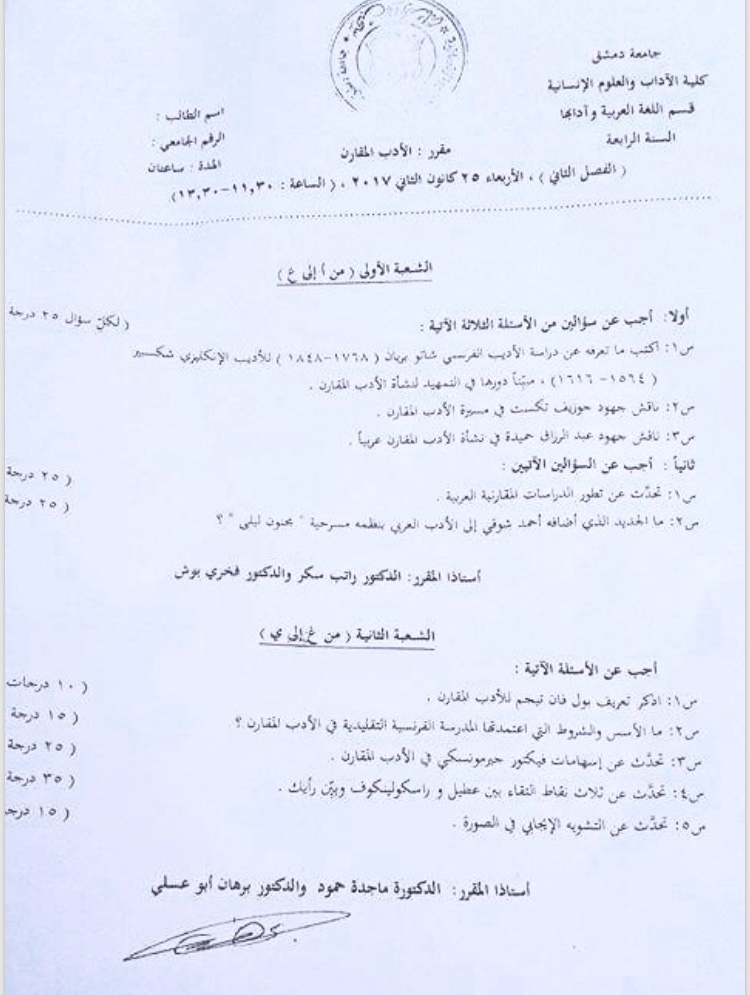 جامعة دمشق
كلية الآداب والعلوم الإنسانية
قسم اللغة العربية وآدابها
السنة الرابعة
اسم الطالب :
الرقم الجامعي :
المدة : ساعتان
مقرر : الأدب المقارن
( الفصل الثاني ) ، الأربعاء ٢٥ كانون الثاني ٢٠١٧ ، ( الساعة : ١١,٣٠-١٣,٣٠ )
الشعبة الأولى ( من أ إلى ع )
أولاً: أجب عن سؤالين من الأسئلة الثلاثة الآتية : ( لكلّ سؤال ٢٥ درجة
س١: اكتب ما تعرفه عن دراسة الأديب الفرنسي شاتو بريان ( ١٧٦٨-١٨٤٨ ) للأديب الإنكليزي شكسبير
( ١٥٦٤- ١٦١٦) ، مبيّناً دورها في التمهيد لنشأة الأدب المقارن .
س٢: ناقش جهود جوزيف تكست في مسيرة الأدب المقارن .
س٣: ناقش جهود عبد الرزاق حميدة في نشأة الأدب المقارن عربياً .
ثانياً : أجب عن السؤالين الآتيين :
س١: تحدّث عن تطور الدراسات المقارنية العربية . ( ٢٥ درجة
س٢: ما الجديد الذي أضافه أحمد شوقي إلى الأدب العربي بنظمه مسرحية " مجنون ليلى " ؟ ( ٢٥ درجة
أستاذا المقرر: الدكتور راتب سكر والدكتور فخري بوش
الشعبة الثانية ( من غ إلى ي )
أجب عن الأسئلة الآتية :
س١: اذكر تعريف بول فان تيجم للأدب المقارن . ( ١٠ درجات
س٢: ما الأسس والشروط التي اعتمدتها المدرسة الفرنسية التقليدية في الأدب المقارن ؟ ( ١٥ درجة
س٣: تحدّث عن إسهامات فيكتور جيرمونسكي في الأدب المقارن . ( ٢٥ درجة
س٤: تحدّث عن ثلاث نقاط التقاء بين عطيل و راسكولينكوف وبيّن رأيك . ( ٣٥ درجة
س٥: تحدّث عن التشويه الإيجابي في الصورة . ( ١٥ درج
أستاذا المقرر : الدكتورة ماجدة حمود والدكتور برهان أبو عسلي